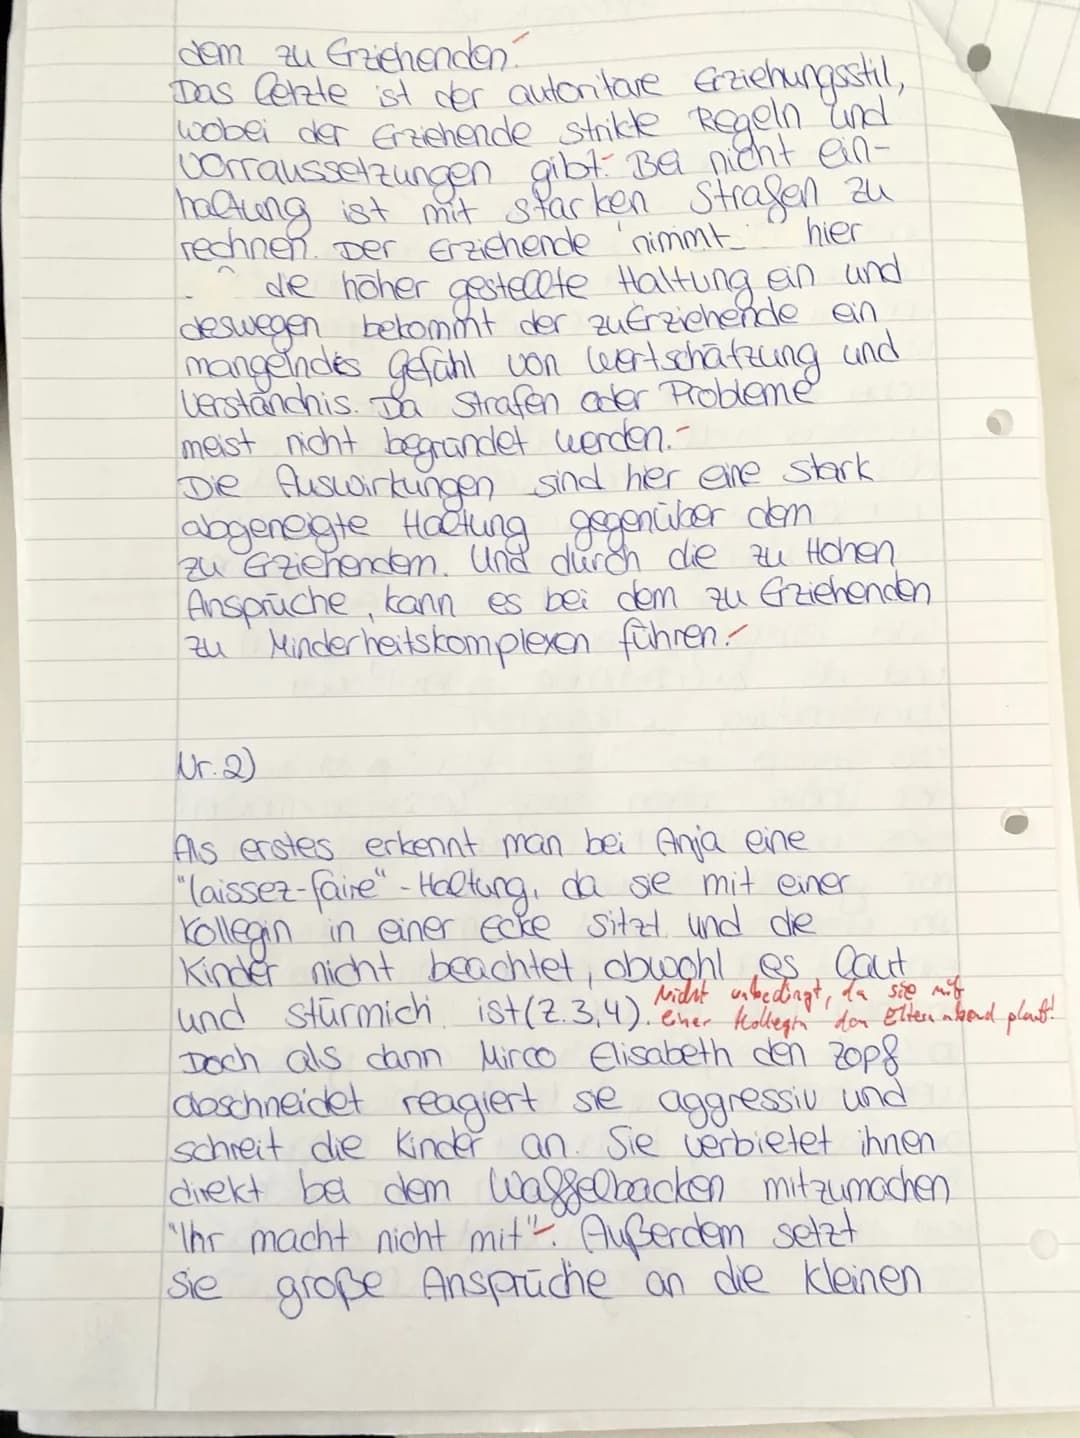 dem zu Erziehenden.
Das letzte ist der autoritäre Erziehungsstil,
wobei der Erziehende strikte Regeln und
Vorraussetzungen gibt. Bei nicht ein-
haltung ist mit starken Strafen zu
rechnen. Der Erziehende nimmt hier
die höher gestellte Haltung ein und
deswegen bekommt der zuErziehende ein
mangelndes Gefühl von Wertschätzung und
Verständnis. Da Strafen oder Probleme
meist nicht begründet werden.
Die Auswirkungen sind hier eine stark
abgeneigte Haltung gegenüber dem
zu Erziehendem. Und durch die zu Hohen
Ansprüche, kann es bei dem zu Erziehenden
zu Minderheitskomplexen führen.
Nr. 2)
Als erstes erkennt man bei Anja eine
"laissez-faire" - Haltung, da sie mit einer
Kollegin in einer Ecke sitzt und die
Kinder nicht beachtet, obwohl es laut
und stürmich ist (Z. 3,4). Nicht unbedingt, da sie mit
einer Kollegin den Elternabend plant!
Doch als dann Mirco Elisabeth den Zopf
abschneidet reagiert sie aggressiv und
schreit die Kinder an. Sie verbietet ihnen
direkt bei dem Waffelbacken mitzumachen
"Ihr macht nicht mit". Außerdem setzt
sie große Ansprüche an die kleinen